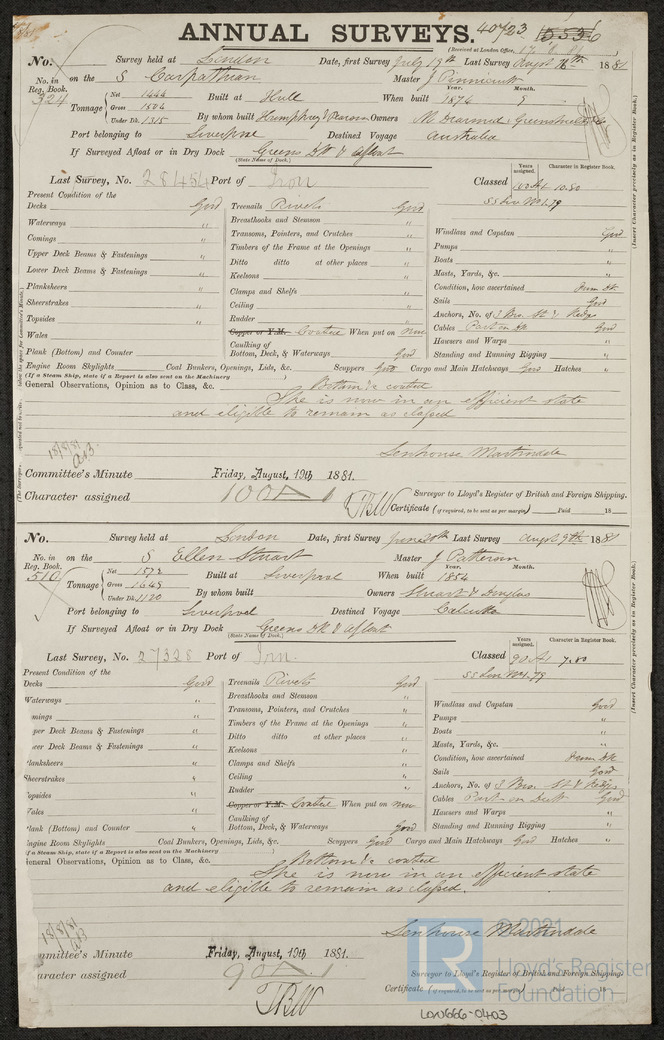 ANNUAL SURVEYS. 40723
(Received at London Office,
No. Survey held at London Date, first Survey July 19th Last Survey Augst 1881
No. in Reg. Book. on the S Carpathian Master J Pinnicutt
324 Tonnage Net 1444 Gross 1504 Under Dk. 1315 Built at Hull When built Year. 1874 Month. 9
By whom built Humphrys & Pearson Owners McDiarmid, Greenshields & Co
Port belonging to Liverpool Destined Voyage Australia
If Surveyed Afloat or in Dry Dock Greens DK & Afloat
(State Name of Dock.)
Last Survey, No. 28454 Port of Iron Classed Years assigned. 100A1 Character in Register Book. 10.80
SS Lon No1.79
Present Condition of the
Decks Good Treenails Rivets Good
Waterways " Breasthooks and Stemson " Windlass and Capstan Good
Comings " Transoms, Pointers, and Crutches " Pumps "
Upper Deck Beams & Fastenings " Timbers of the Frame at the Openings " Boats "
Lower Deck Beams & Fastenings " Ditto ditto at other places " Masts, Yards, &c. "
Plankshears " Keelsons " Condition, how ascertained From Dk
Sheerstrakes " Clamps and Shelfs " Sails Good
Topsides " Ceiling " Anchors, No. of 3 Bro. St & Kedges
Wales " Rudder " Cables Part on Dk Good
Copper or Y.M. Coated When put on new Hawsers and Warps "
Plank (Bottom) and Counter " Caulking of Bottom, Deck, & Waterways Good Standing and Running Rigging "
Engine Room Skylights Coal Bunkers, Openings, Lids, &c. Scuppers Good Cargo and Main Hatchways Good Hatches "
(If a Steam Ship, state if a Report is also sent on the Machinery )
General Observations, Opinion as to Class, &c. Bottom &c coated
She is now in an efficient state
and eligible to remain as classed
Senhouse Martindale
18/8/81
Committee's Minute Friday, August, 19th 1881.
Character assigned 100A1
Surveyor to Lloyd's Register of British and Foreign Shipping.
Certificate (if required, to be sent as per margin) Paid 18
(Insert Character precisely as in Register Book.)
No. Survey held at London Date, first Survey June 30th Last Survey Augst 9th 1881
No. in Reg. Book. on the S Ellen Stuart Master J Patterson
510 Tonnage Net 1572 Gross 1649 Under Dk. 1120 Built at Liverpool When built Year. 1854 Month.
By whom built Owners Stuart & Douglas
Port belonging to Liverpool Destined Voyage Calcutta
If Surveyed Afloat or in Dry Dock Greens DK & Afloat
(State Name of Dock.)
Last Survey, No. 27328 Port of Irn. Classed Years assigned. 90A1 Character in Register Book. 7.80
SS Lon No1.79
Present Condition of the
Decks Good Treenails Rivets Good
Waterways " Breasthooks and Stemson " Windlass and Capstan Good
mings " Transoms, Pointers, and Crutches " Pumps "
per Deck Beams & Fastenings " Timbers of the Frame at the Openings " Boats "
wer Deck Beams & Fastenings " Ditto ditto at other places " Masts, Yards, &c. "
lanksheers " Keelsons " Condition, how ascertained From Dk
Sheerstrakes " Clamps and Shelfs " Sails Good
opsides " Ceiling " Anchors, No. of 3 Bro. St & Kedges
Wales " Rudder " Cables Part on Deck Good
Copper or Y.M. Coated When put on new Hawsers and Warps "
lank (Bottom) and Counter " Caulking of Bottom, Deck, & Waterways Good Standing and Running Rigging "
ngine Room Skylights Coal Bunkers, Openings, Lids, &c. Scuppers Good Cargo and Main Hatchways Good Hatches "
f a Steam Ship, state if a Report is also sent on the Machinery )
eneral Observations, Opinion as to Class, &c. Bottom &c coated
She is now in an efficient state
and eligible to remain as classed.
Senhouse Martindale
18/8/81
mmittee's Minute Friday, August, 19th 1881.
aracter assigned 90A.1
Surveyor to Lloyd's Register of British and Foreign Shipping.
Certificate (if required, to be sent as per margin) Paid 18
(Insert Character precisely as in Register Book.)
LR © 2021
Lloyd's Register
Foundation
LON666-0403